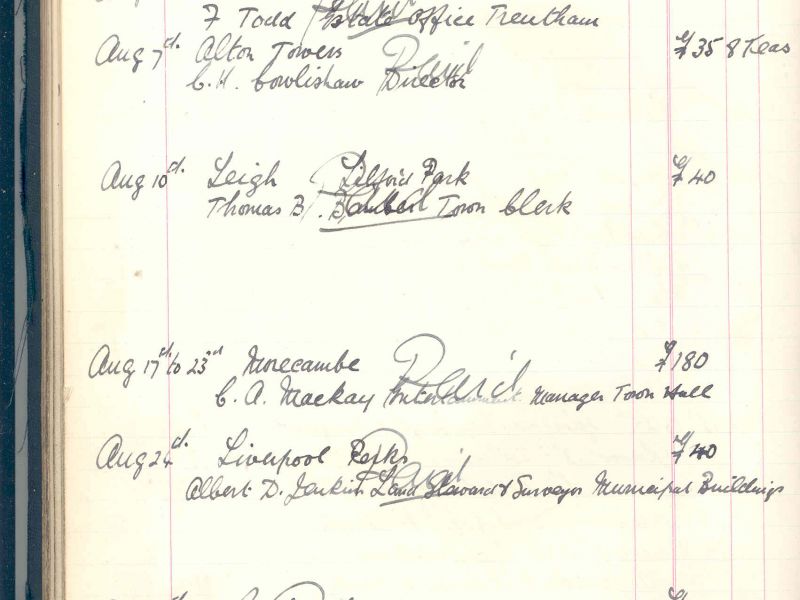 F Todd Estate Office Trentham
Aug 7th. Alton Towers Paid £35 8 Teas
C. H. Cowlishaw Director
Aug 10th. Leigh Lilford Park £40
Thomas B. Town Clerk
Paid
Aug 17th to 23rd Morecambe Paid £180
C. A. Mackay Entertainment Manager Town Hall
Aug 24th. Liverpool Parks £40
Paid
Albert D. Jenkins Land Steward & Surveyor Municipal Buildings